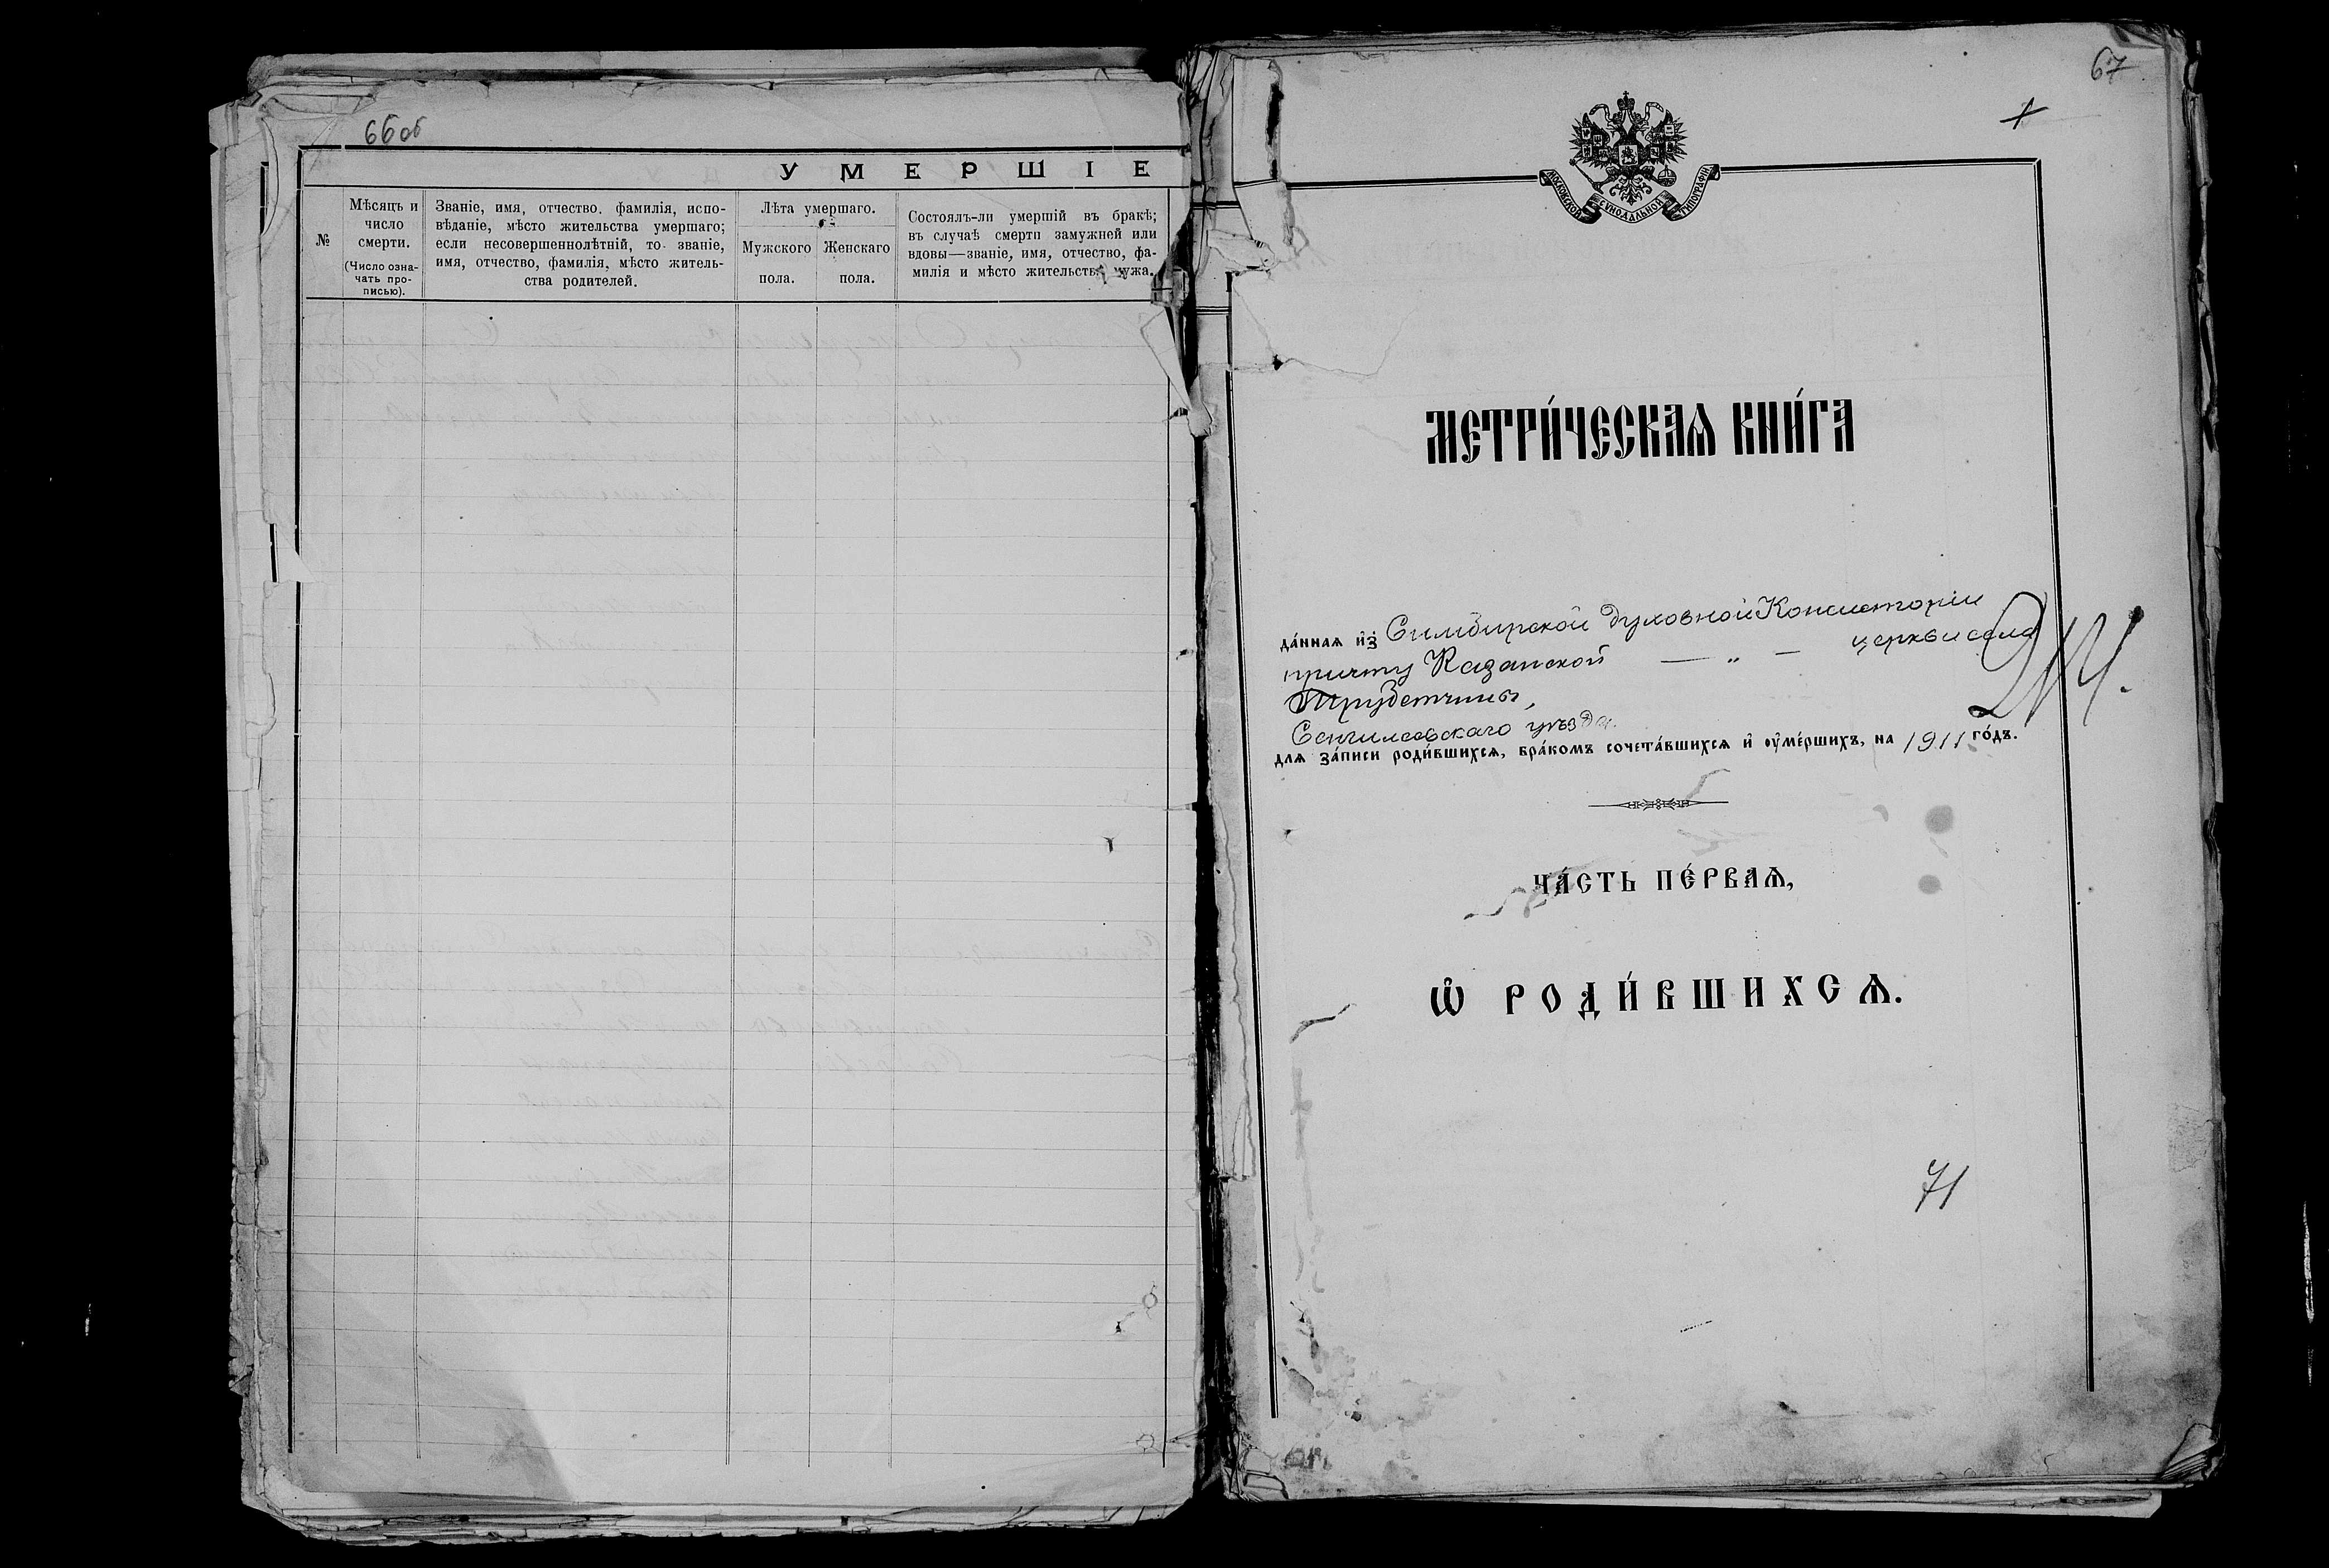 66 об
УМЕРШІЕ
№
Мѣсяцъ и
число
смерти.
(Число озна-
чать про-
писью).
Званіе, имя, отчество, фамилія, испо-
вѣданіе, мѣсто жительства умершаго;
если несовершеннолѣтній, то- званіе,
имя, отчество, фамилія, мѣсто житель-
ства родителей.
Лѣта умершаго.
Мужского
пола.
Женскаго
пола.
Состоялъ-ли умершій въ бракѣ;
въ случаѣ смерти замужней или
вдовы—званіе, имя, отчество, фа-
милія и мѣсто жительства мужа.
67
МОСКОВСКОЙ СѴНОДАЛЬНОЙ ТИПОГРАФІИ
МЕТРИ́ЧЕСКАѦ КНИ́ГА
да́ннаѧ и҆з̾ Симбирской духовной Консисторіи
причту Казанской — „ — церкви села
Трубетчины,
Сенгилеевскаго уѣзда.
длѧ за́писи роди́вшихсѧ, бра́комъ сочета́вшихсѧ и҆ ᲂу҆ме́ршихъ, на 1911 го́дъ.
ЧА́СТЬ ПЕ́РВАѦ,
Ѽ РОДИ́ВШИХСѦ.
71